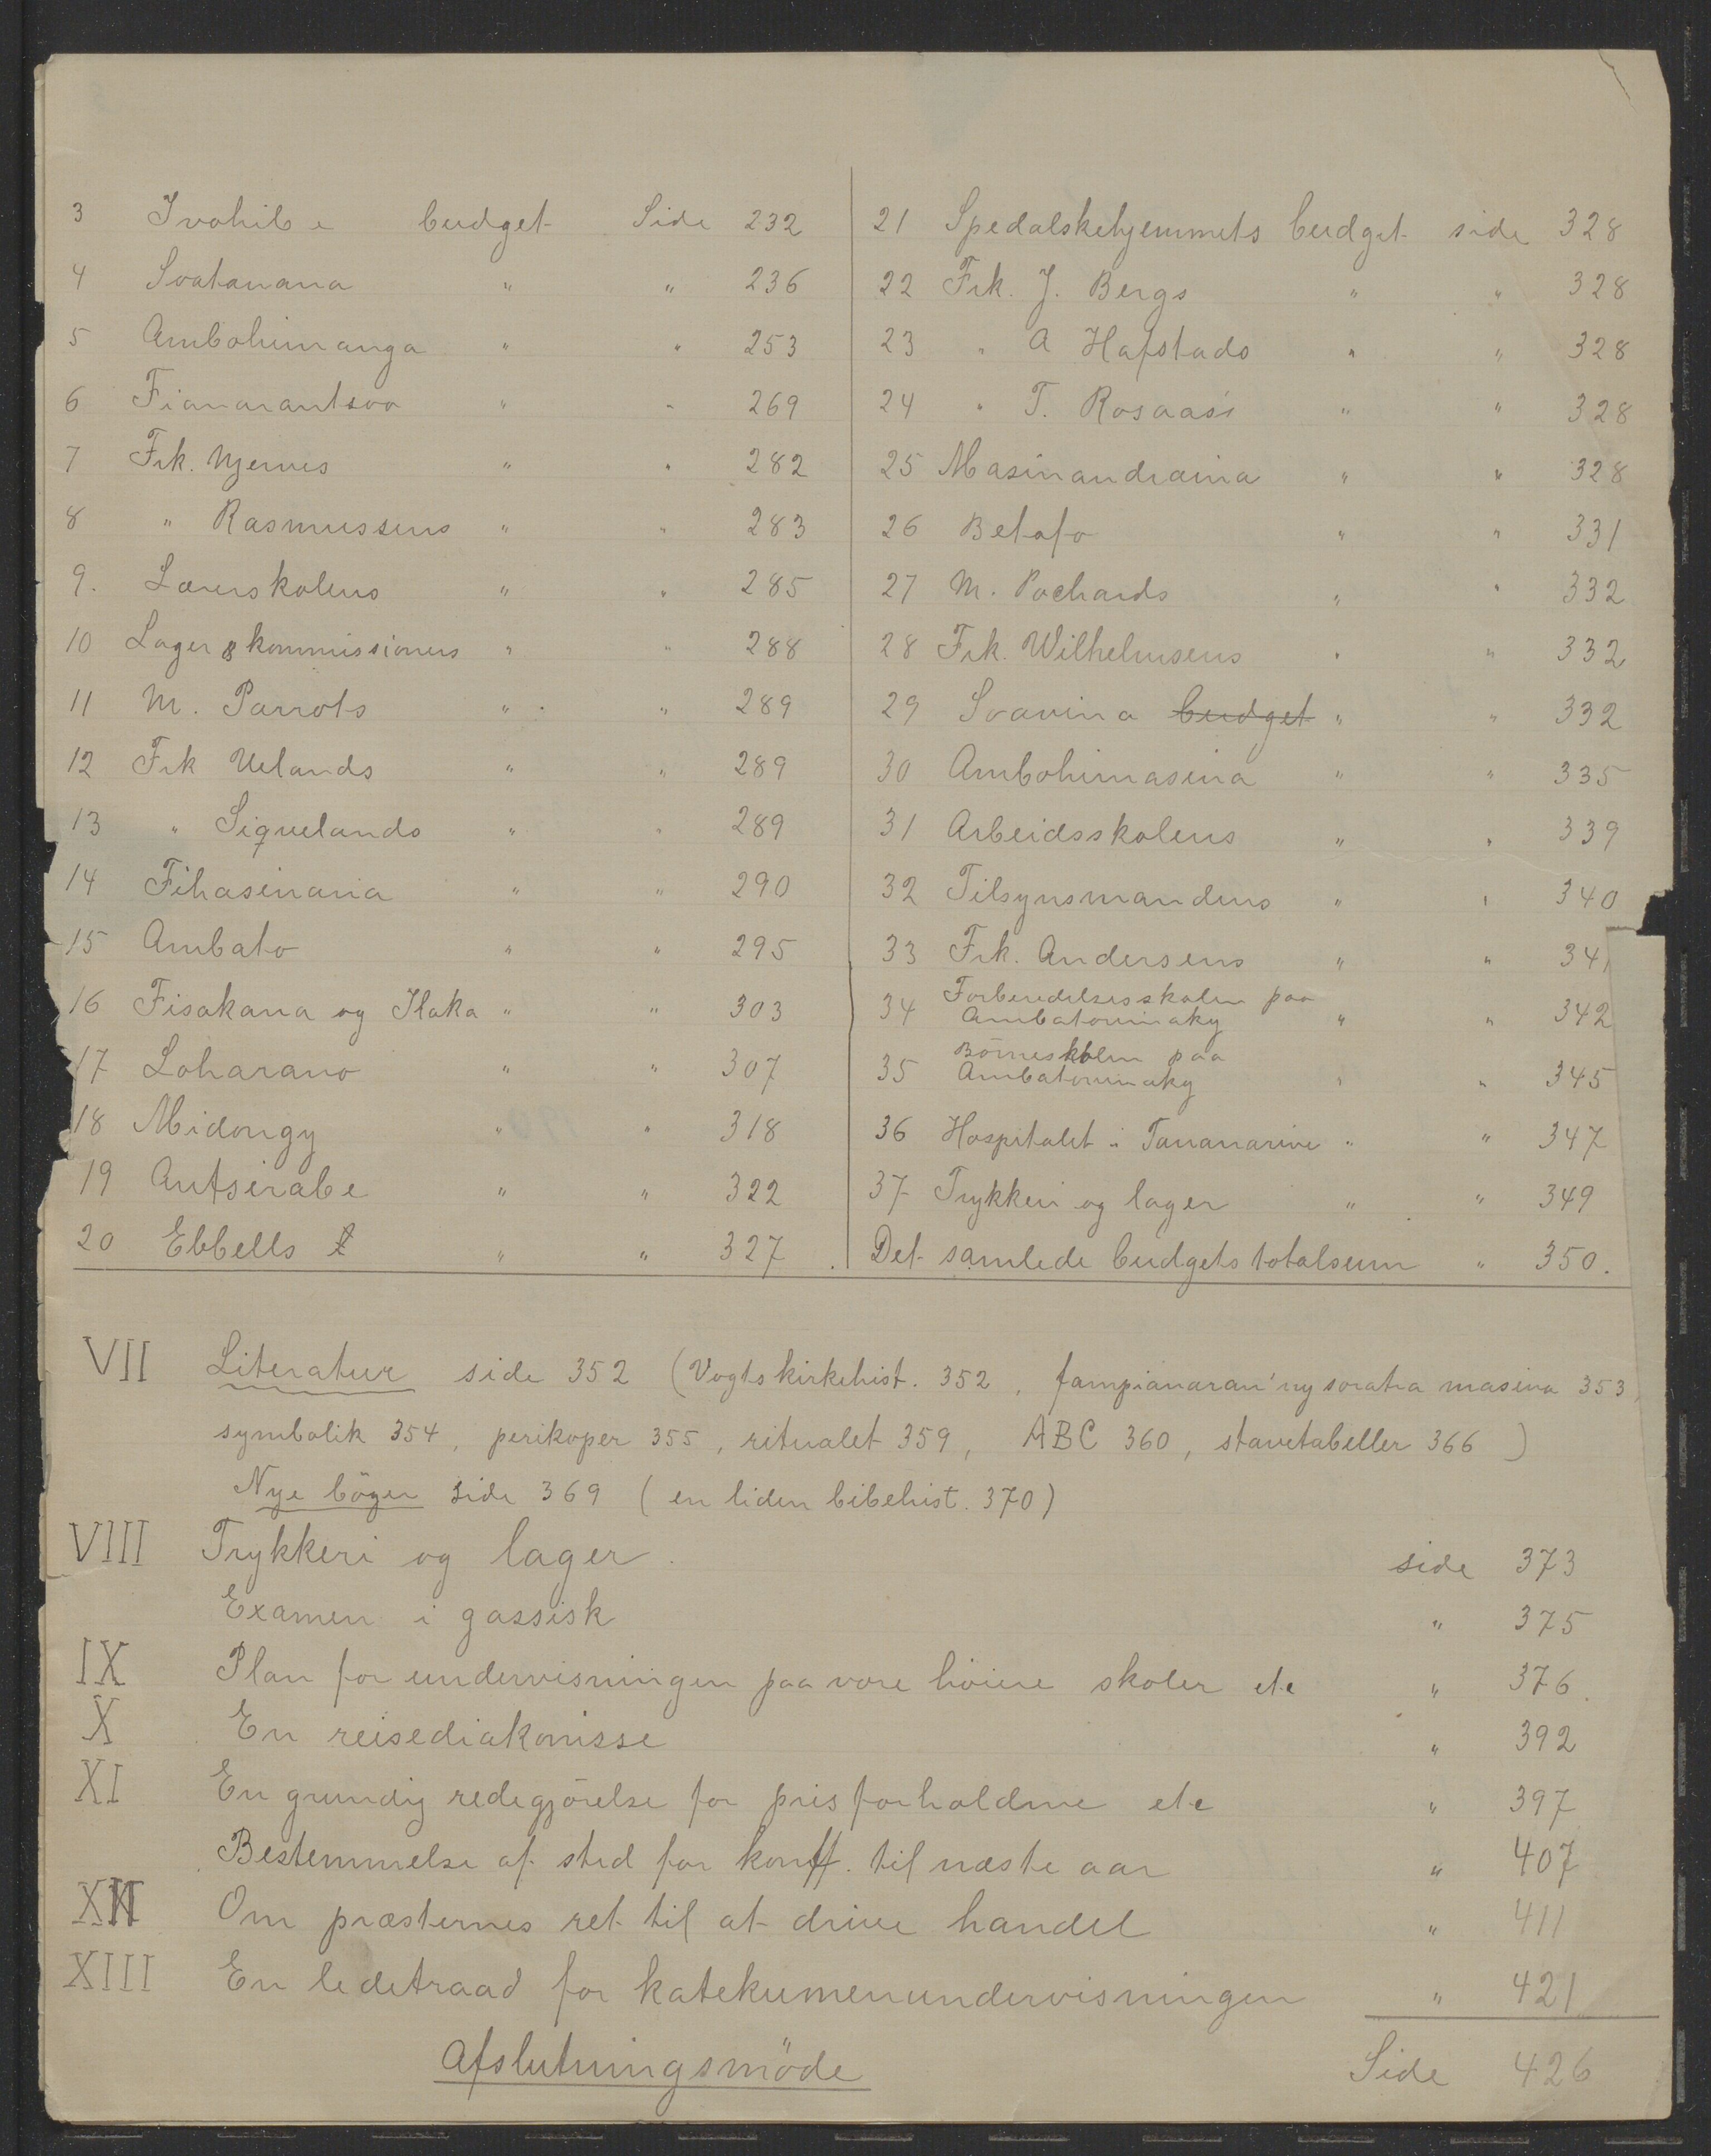 3 Ivohibe budget Side 232
4 Soatanana " " 236
5 Ambohimanga " " 253
6 Fianarantsoa " " 269
7 Frk. Njernes " " 282
8 " Rasmussens " " 283
9. Lærerskolens " " 285
10 Lagerskommissionens " " 288
11 M. Parrots " " 289
12 Frk Uelands " " 289
13 " Siquelands " " 289
14 Fihasinana " " 290
15 Ambato " " 295
16 Fisakana og Ilaka " " 303
17 Loharano " " 307
18 Midongy " " 318
19 Antsirabe " " 322
20 Ebbells " " 327
21 Spedalskehjemmets budget side 328
22 Frk. J. Bergs " " 328
23 " A Hafstads " " 328
24 " T. Rosaas's " " 328
25 Masinandraina " " 328
26 Betafo " " 331
27 M. Pochards " " 332
28 Frk. Wilhelmsens " " 332
29 Soavina budget " " 332
30 Ambohimasina " " 335
31 Arbeidsskolens " " 339
32 Tilsynsmandens " " 340
33 Frk. Andersens " " 341
34 Forberedelsesskolen paa
Ambatovinaky " " 342
35 Börneskolen paa
Ambatovinaky " " 345
36 Hospitalet i Tananarive " " 347
37 Trykkeri og lager " " 349
Det samlede budgets totalsum " 350.
VII Literatur side 352 (Vogts kirkehist. 352, fampianaran'ny soratra masina 353
symbolik 354, perikoper 355, ritualet 359, ABC 360, stavetabeller 366)
Nye böger side 369 (en liden bibelhist. 370)
VIII Trykkeri og lager. side 373
Examen i gassisk " 375
IX Plan for undervisningen paa vore höiere skoler etc " 376.
X En reisediakonisse " 392
XI En grundig redegjörelse for prisforholdene etc " 397
Bestemmelse af sted for konff. til næste aar " 407
XII Om præsternes ret til at drive handel " 411
XIII En ledetraad for katekumenundervisningen " 421
Afslutningsmöde Side 426